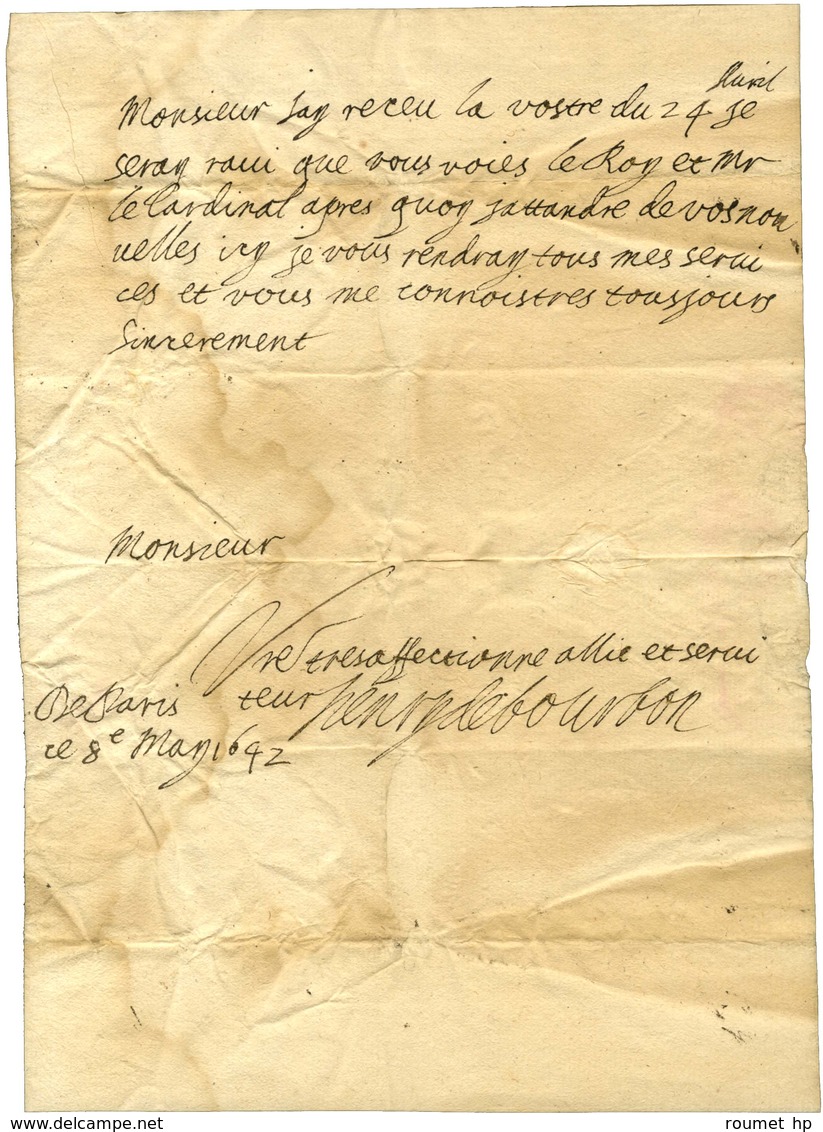 Auril
Monsieur Jay receu la vostre du 24 je
seray raui que vous voies le Roy et Mr
le Cardinal apres quoy jattandre de vos nou
uelles icy je vous rendray tous mes serui
ces et vous me connoistres tousjours
sincerement
Monsieur
Vre tres affectionne allie et serui
De Paris teur henry de bourbon
ce 8e May 1642
roumet hp
www.delcampe.net